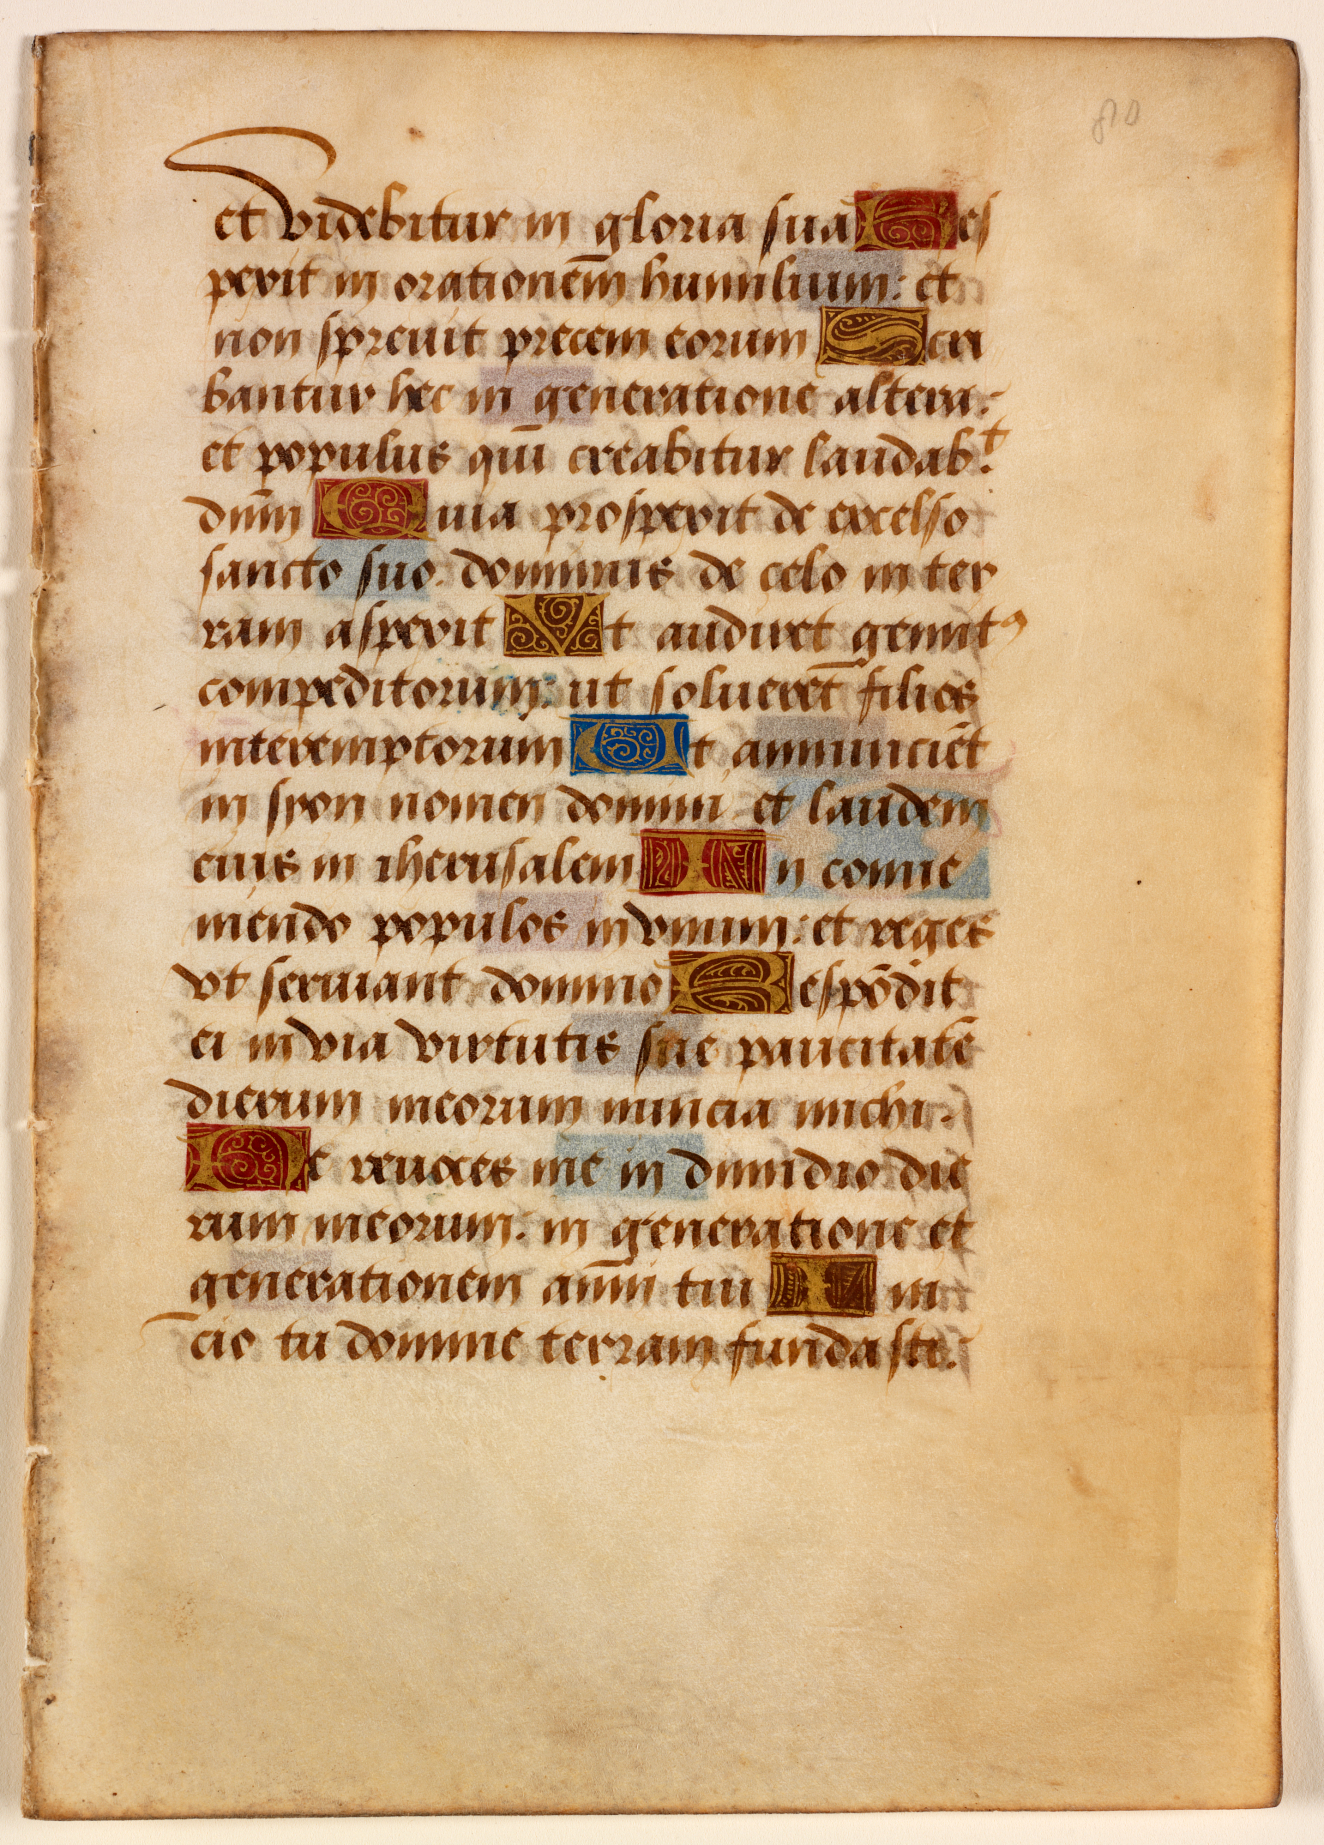 80
et videbitur in gloria sua Res
pexit in orationem̄ humilium: et
non spreuit precem eorum Scri
bantur hec in generatione altera:
et populus qui creabitur laudabᵗ.
dūm Quia prospexit de excelso
sancto suo. dominus de celo in ter
ram aspexit Vt audiret gemitꝰ
compeditorum: ut solueret̄ filios
interemptorum Ut annunciēt
in syon nomen domini et laudem
eius in iherusalem In conue
niendo populos in vnum: et reges
vt seruiant domino Respōdit
ei in via virtutis sue paucitatē
dierum meorum nuncia michi.
Ne reuoces me in dimidio die
rum meorum: in generatione et
generationem anni tui In ini
cio tu domine terram fundasti: